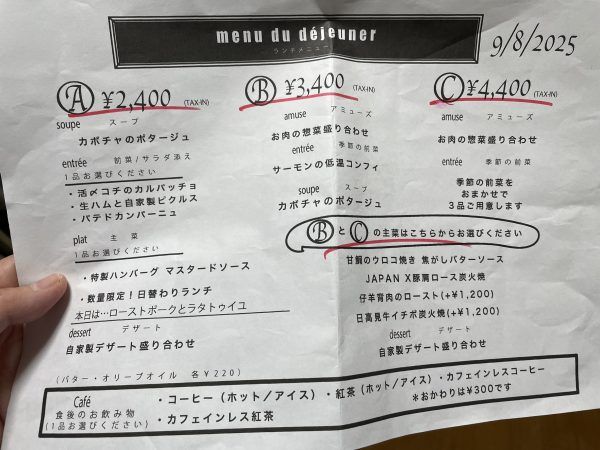 menu du déjeuner
ランチメニュー
9/8/2025
Ⓐ ¥2,400 (TAX-IN)
soupe スープ
カボチャのポタージュ
entrée 前菜/サラダ添え
1品お選びください
・活〆コチのカルパッチョ
・生ハムと自家製ピクルス
・パテドカンパーニュ
plat 主菜
1品お選びください
・特製ハンバーグ マスタードソース
・数量限定!日替わりランチ
本日は…ローストポークとラタトゥイユ
dessert デザート
自家製デザート盛り合わせ
(バター・オリーブオイル 各¥220)
Ⓑ ¥3,400 (TAX-IN)
amuse アミューズ
お肉の惣菜盛り合わせ
entrée 季節の前菜
サーモンの低温コンフィ
soupe スープ
カボチャのポタージュ
Ⓒ ¥4,400 (TAX-IN)
amuse アミューズ
お肉の惣菜盛り合わせ
entrée 季節の前菜
季節の前菜を
おまかせで
3品ご用意します
ⒷとⒸの主菜はこちらからお選びください
甘鯛のウロコ焼き 焦がしバターソース
JAPAN X豚肩ロース炭火焼
仔羊背肉のロースト(+¥1,200)
日高見牛イチボ炭火焼(+¥1,200)
dessert デザート
自家製デザート盛り合わせ
Café
食後のお飲み物
(1品お選びください)
・コーヒー(ホット/アイス)・紅茶(ホット/アイス)・カフェインレスコーヒー
・カフェインレス紅茶
*おかわりは¥300です